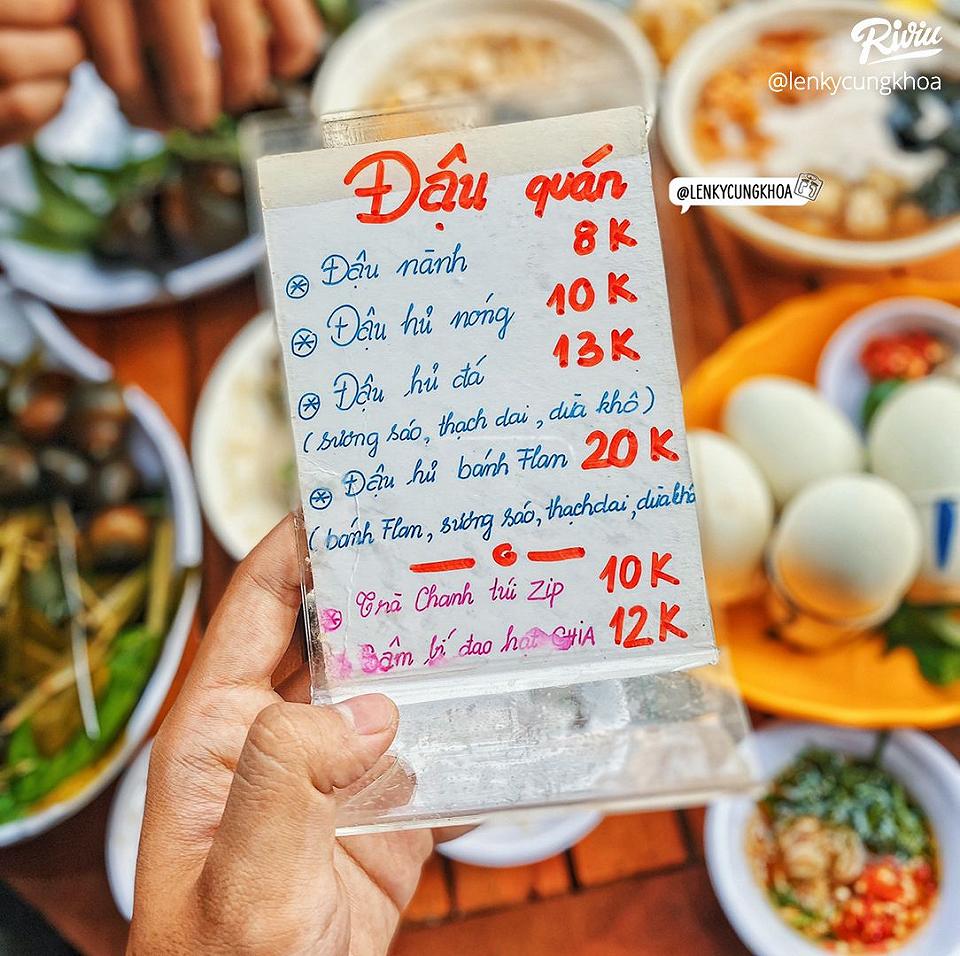 Riviu
@lenkycungkhoa
@LENKYCUNGKHOA
Đậu quán
Đậu nành 8K
Đậu hủ nóng 10K
Đậu hủ đá 13K
(sương sáo, thạch dai, dừa khô)
Đậu hủ bánh Flan 20K
(bánh Flan, sương sáo, thạch dai, dừa khô
Trà Chanh túi Zip 10K
Sâm bí đao hạt CHIA 12K